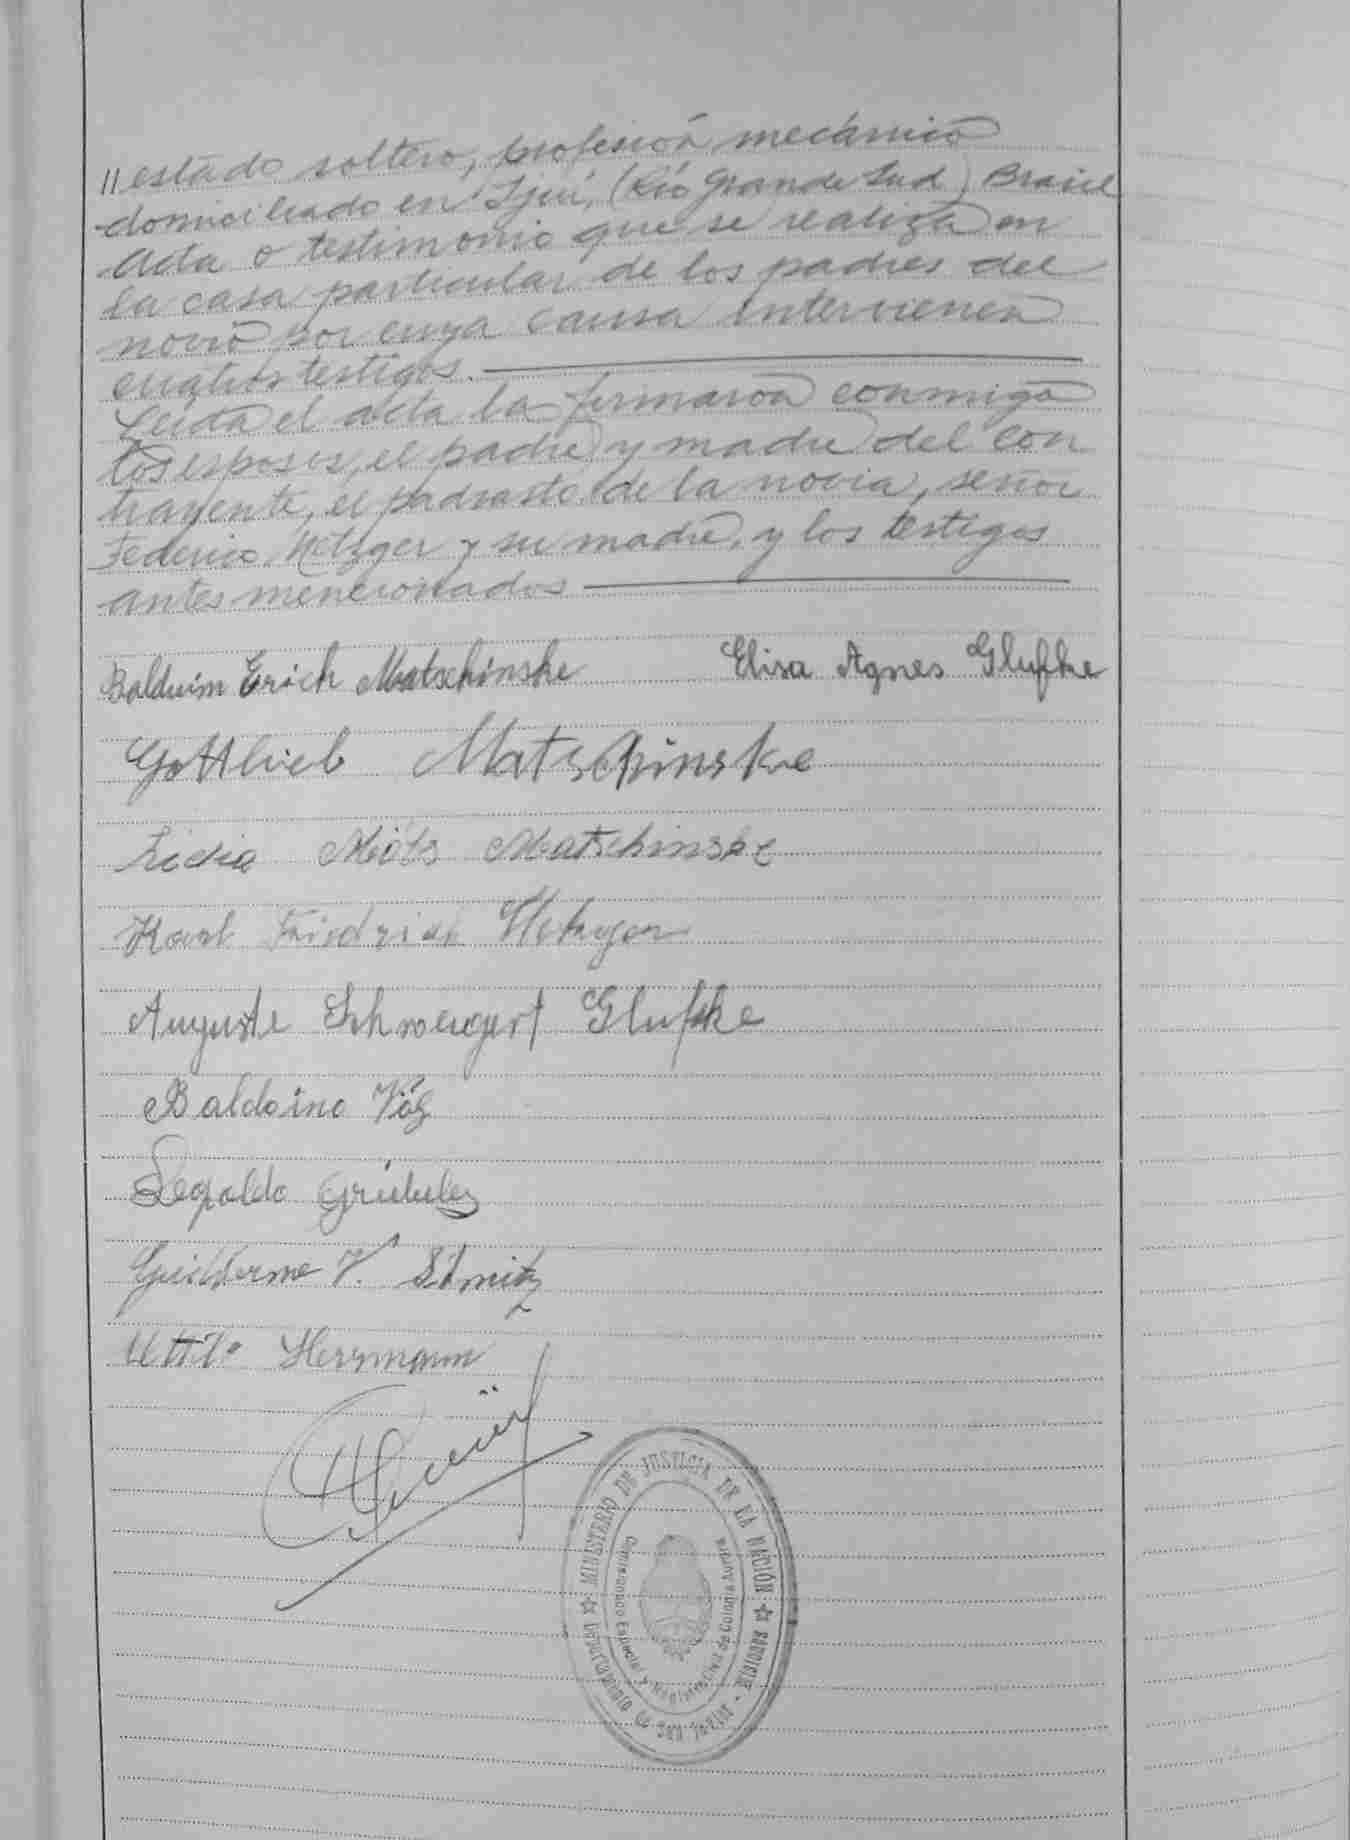 // estado soltero, profesión mecánico
domiciliado en Ijuí, (Río Grande Sud) Brasil
Acta o testimonio que se realiza en
la casa particular de los padres del
novio por cuya causa intervienen
cuatros testigos.
Leída el acta la firmaron conmigo
los esposos, el padre y madre del con
trayente, el padrasto de la novia, señor
Federico Metzger y su madre, y los testigos
antes mencionados
Balduim Erich Matschinske Elisa Agnes Glufke
Gottlieb Matschinske
Lidia Matschinske
Karl Friedrich Metzger
Auguste Schweigert Glufke
Baldoino
Leopoldo
Guilherme V. Schmitz
Herrmann
★ MINISTERIO DE JUSTICIA DE LA NACIÓN ★